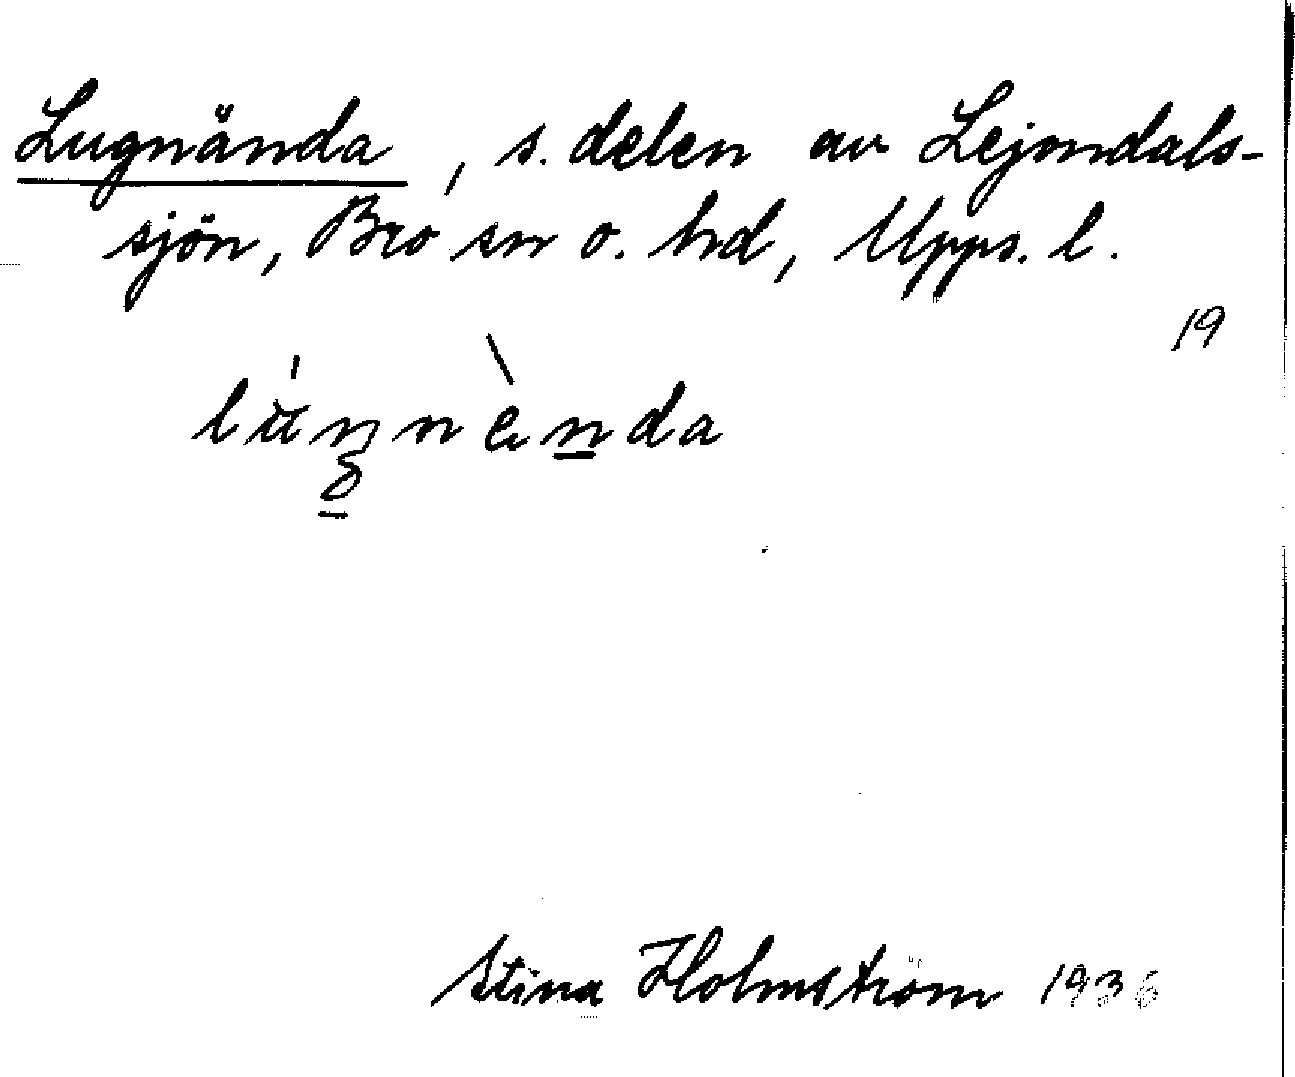 Lugnända, s. delen av Lejondals-
sjön, Bro sn o. hd, Upps. l.
19
Stina Holmström 1936